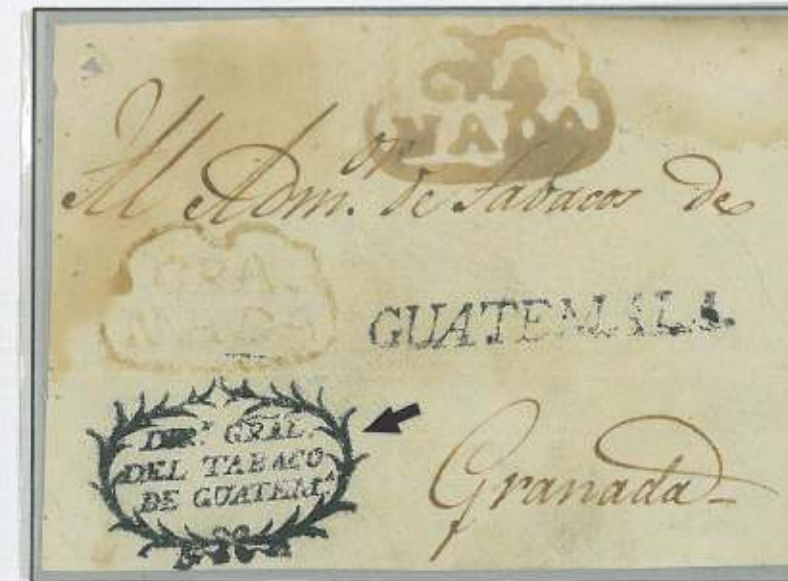 GRA
NADA
Al Adm.or de Tabacos de
GUATEMALA.
DIR.n GRÂL.
DEL TABACO
DE GUATEM.A
Granada